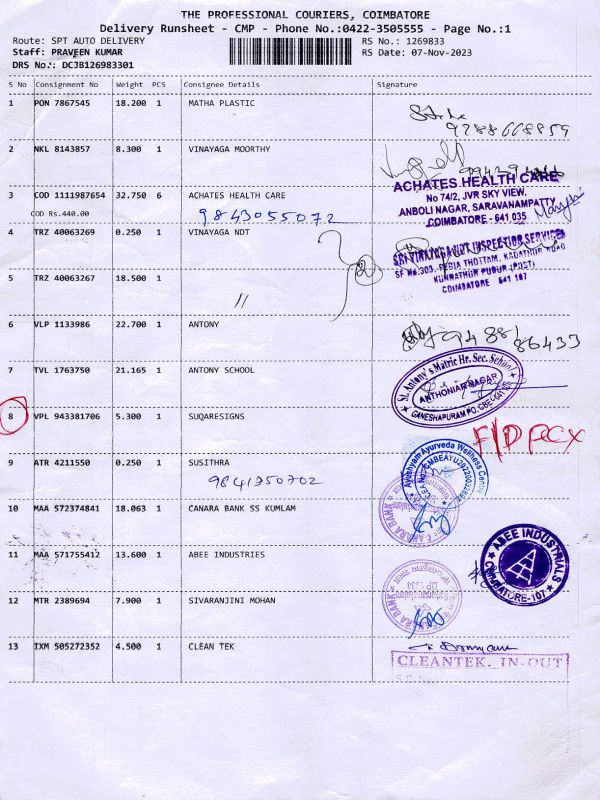 THE PROFESSIONAL COURIERS, COIMBATORE
Delivery Runsheet - CMP - Phone No.:0422-3505555 - Page No.:1
Route: SPT AUTO DELIVERY
RS No.: 1269833
Staff: PRAVEEN KUMAR
RS Date: 07-Nov-2023
DRS No.: DCJB126983301
S No Consignment No Weight PCS Consignee Details Signature
1 PON 7867545 18.200 1 MATHA PLASTIC
9788668859
2 NKL 8143857 8.300 1 VINAYAGA MOORTHY
ACHATES HEALTH CARE
No 74/2, JVR SKY VIEW,
ANBOLI NAGAR, SARAVANAMPATTY
COIMBATORE - 641 035
3 COD 1111987654 32.750 6 ACHATES HEALTH CARE
COD Rs.440.00
9843055072
4 TRZ 40063269 0.250 1 VINAYAGA NDT
SRI VINAYAGA NDT INSPECTION SERVICES
SF No.303, PERIA THOTTAM, KADATHUR ROAD
KURNATHUR PUDUR (POST)
COIMBATORE 641 107
5 TRZ 40063267 18.500 1
//
6 VLP 1133986 22.700 1 ANTONY
9488186433
7 TVL 1763750 21.165 1 ANTONY SCHOOL
St. Antony's Matric Hr. Sec. School
ANTHONIAR NAGAR
GANESHAPURAM PO. CBE
8 VPL 943381706 5.300 1 SUQARESIGNS
F/D
9 ATR 4211550 0.250 1 SUSITHRA
9841350702
Ayushyam Ayurveda Wellness Centre
10 MAA 572374841 18.063 1 CANARA BANK SS KUMLAM
CANARA BANK
11 MAA 571755412 13.600 1 ABEE INDUSTRIES
ABEE INDUSTRIALS
COIMBATORE-107
12 MTR 2389694 7.900 1 SIVARANJINI MOHAN
CANARA BANK
13 IXM 505272352 4.500 1 CLEAN TEK
CLEANTEK. IN-OUT